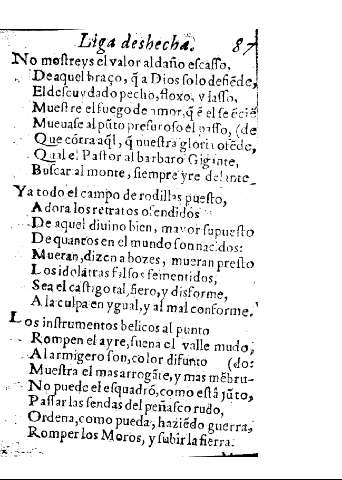 Liga deshecha. 87
No mostreys el valor al daño escasso,
De aquel braço, q̃ a Dios solo defiẽde,
El descuydado pecho, floxo, y lasso,
Muestre el fuego de amor, q̃ ẽ el se ẽciẽ
Mueuase al pũto presuroso el passo, (de
Que corra aql, q̃ nuestra gloria ofẽde,
Qual el Pastor al barbaro Gigante,
Buscar al monte, siempre yre delante
Ya todo el campo de rodillas puesto,
Adora los retratos ofendidos
De aquel diuino bien, mayor supuesto
De quantos en el mundo son nacidos:
Mueran, dizen a bozes, mueran presto
Los idolatras falsos fementidos,
Sea el castigo tal, fiero, y disforme,
A la culpa en ygual, y al mal conforme.
Los instrumentos belicos al punto
Rompen el ayre, suena el valle mudo,
Al armigero son, color difunto (do:
Muestra el mas arrogãte, y mas mẽbru-
No puede el esquadrõ, como està jũto,
Passar las sendas del peñasco rudo,
Ordena, como pueda, haziẽdo guerra,
Romper los Moros, y subir la sierra.